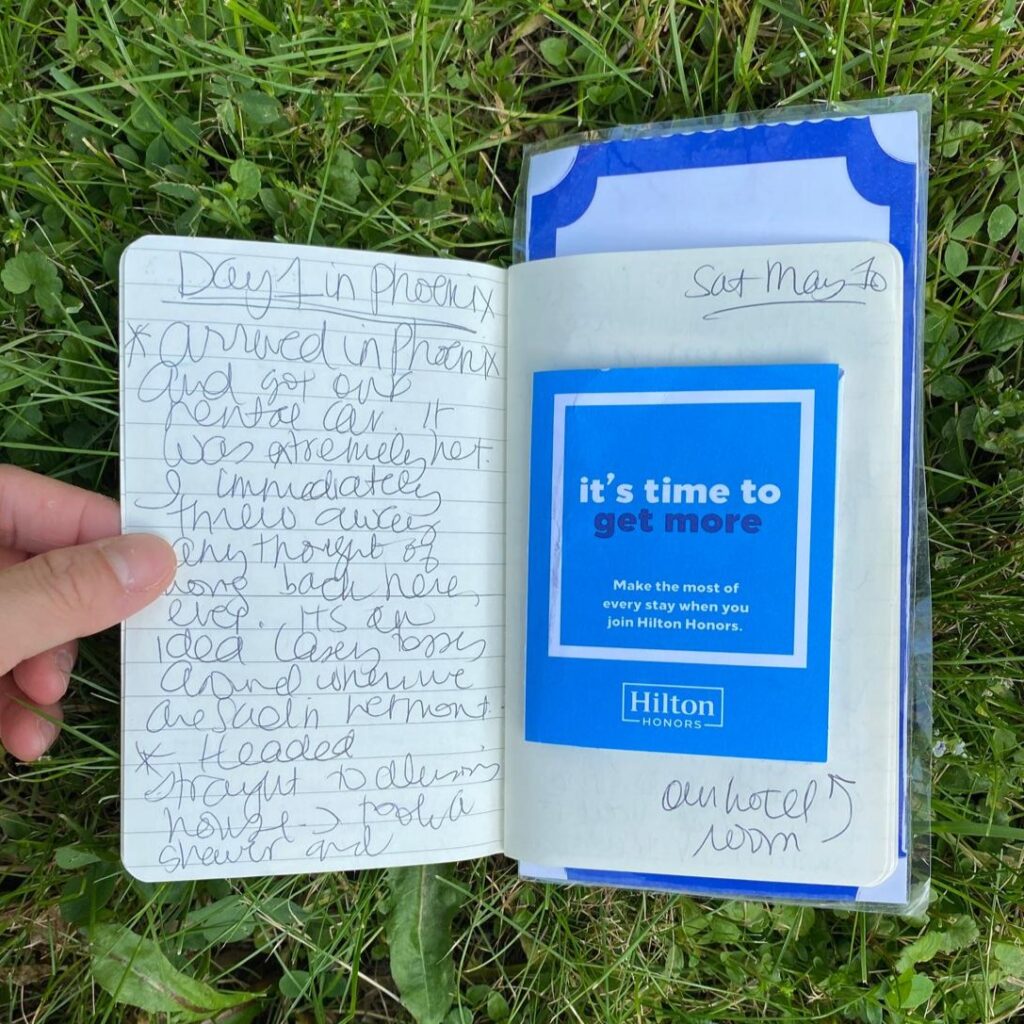 Day 1 in Phoenix
* arrived in Phoenix
and got our
rental car. It
was extremely hot.
I immediately
threw away
any thought of
back here
ever. Its an
idea Casey tosses
around when we
are sad in Vermont.
* Headed
straight to
house -> took a
shower and
Sat May 10
it's time to
get more
Make the most of
every stay when you
join Hilton Honors.
Hilton
HONORS
our hotel
room